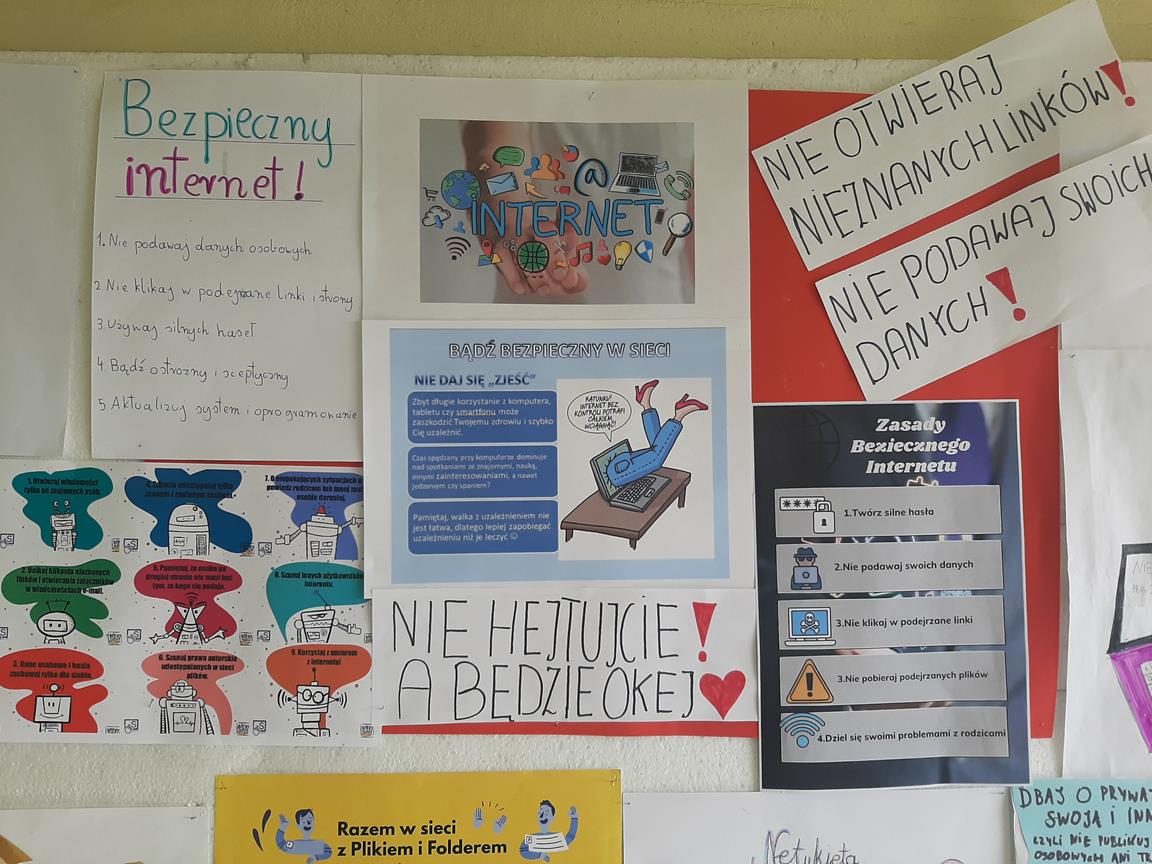 Bezpieczny
internet!
1. Nie podawaj danych osobowych
2. Nie klikaj w podejrzane linki i strony
3. Używaj silnych haseł
4. Bądź ostrożny i sceptyczny
5. Aktualizuj system i oprogramowanie
INTERNET
@
BĄDŹ BEZPIECZNY W SIECI
NIE DAJ SIĘ „ZJEŚĆ”
Zbyt długie korzystanie z komputera,
tabletu czy smartfonu może
zaszkodzić Twojemu zdrowiu i szybko
Cię uzależnić.
Czas spędzany przy komputerze dominuje
nad spotkaniami ze znajomymi, nauką,
innymi zainteresowaniami, a nawet
jedzeniem czy spaniem?
Pamiętaj, walka z uzależnieniem nie
jest łatwa, dlatego lepiej zapobiegać
uzależnieniu niż je leczyć ☺
RATUNKU!
INTERNET BEZ
KONTROLI POTRAFI
CAŁKIEM
WCIĄGNĄĆ!
NIE OTWIERAJ
NIEZNANYCH LINKÓW!
NIE PODAWAJ SWOICH
DANYCH!
1. Otwieraj wiadomości
tylko od znajomych osób.
znanym i zaufanym osobom.
7. O niepokojących sytuacjach
powiedz rodzicom lub innej
osobie dorosłej.
2. Unikaj klikania nieznanych
linków i otwierania załączników
w wiadomościach e-mail.
5. Pamiętaj, że osoba po
drugiej stronie nie musi być
tym, za kogo się podaje.
8. Szanuj innych użytkowników
internetu.
3. Dane osobowe i hasła
zachowaj tylko dla siebie.
6. Szanuj prawa autorskie
udostępnianych w sieci
plików.
9. Korzystaj z umiarem
z internetu!
NIE HEJTUJCIE!
A BĘDZIE OKEJ
Zasady
Beziecznego
Internetu
****
1.Twórz silne hasła
2.Nie podawaj swoich danych
3.Nie klikaj w podejrzane linki
3.Nie pobieraj podejrzanych plików
4.Dziel się swoimi problemami z rodzicami
Razem w sieci
z Plikiem i Folderem
Netykieta
DBAJ O PRYWA
SWOJĄ I INN
CZYLI NIE PUBLIKUJ
OSOBOWYCH ANI